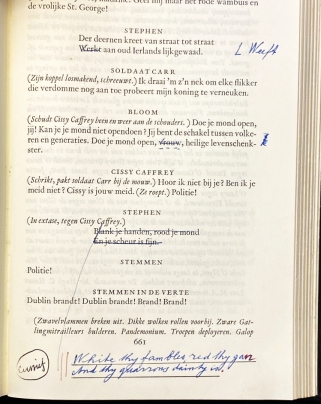 de vrolijke St. George!
STEPHEN
Der deernen kreet van straat tot straat
Werkt aan oud Ierlands lijkgewaad.
L Weeft
SOLDAAT CARR
(Zijn koppel losmakend, schreeuwt.) Ik draai 'm z'n nek om elke flikker
die verdomme nog aan toe probeert mijn koning te verneuken.
BLOOM
(Schudt Cissy Caffrey heen en weer aan de schouders.) Doe je mond open,
jij! Kan je je mond niet opendoen? Jij bent de schakel tussen volke-
ren en generaties. Doe je mond open, vrouw, heilige levenschenk-
ster.
CISSY CAFFREY
(Schrikt, pakt soldaat Carr bij de mouw.) Hoor ik niet bij je? Ben ik je
meid niet? Cissy is jouw meid. (Ze roept.) Politie!
STEPHEN
(In extase, tegen Cissy Caffrey.)
Blank je handen, rood je mond
En je scheur is fijn.
STEMMEN
Politie!
STEMMEN IN DE VERTE
Dublin brandt! Dublin brandt! Brand! Brand!
(Zwavelvlammen breken uit. Dikke wolken rollen voorbij. Zware Gat-
lingmitrailleurs bulderen. Pandemonium. Troepen deployeren. Galop
661
cursief
White thy fambles, red thy gan
And thy quarrons dainty is.